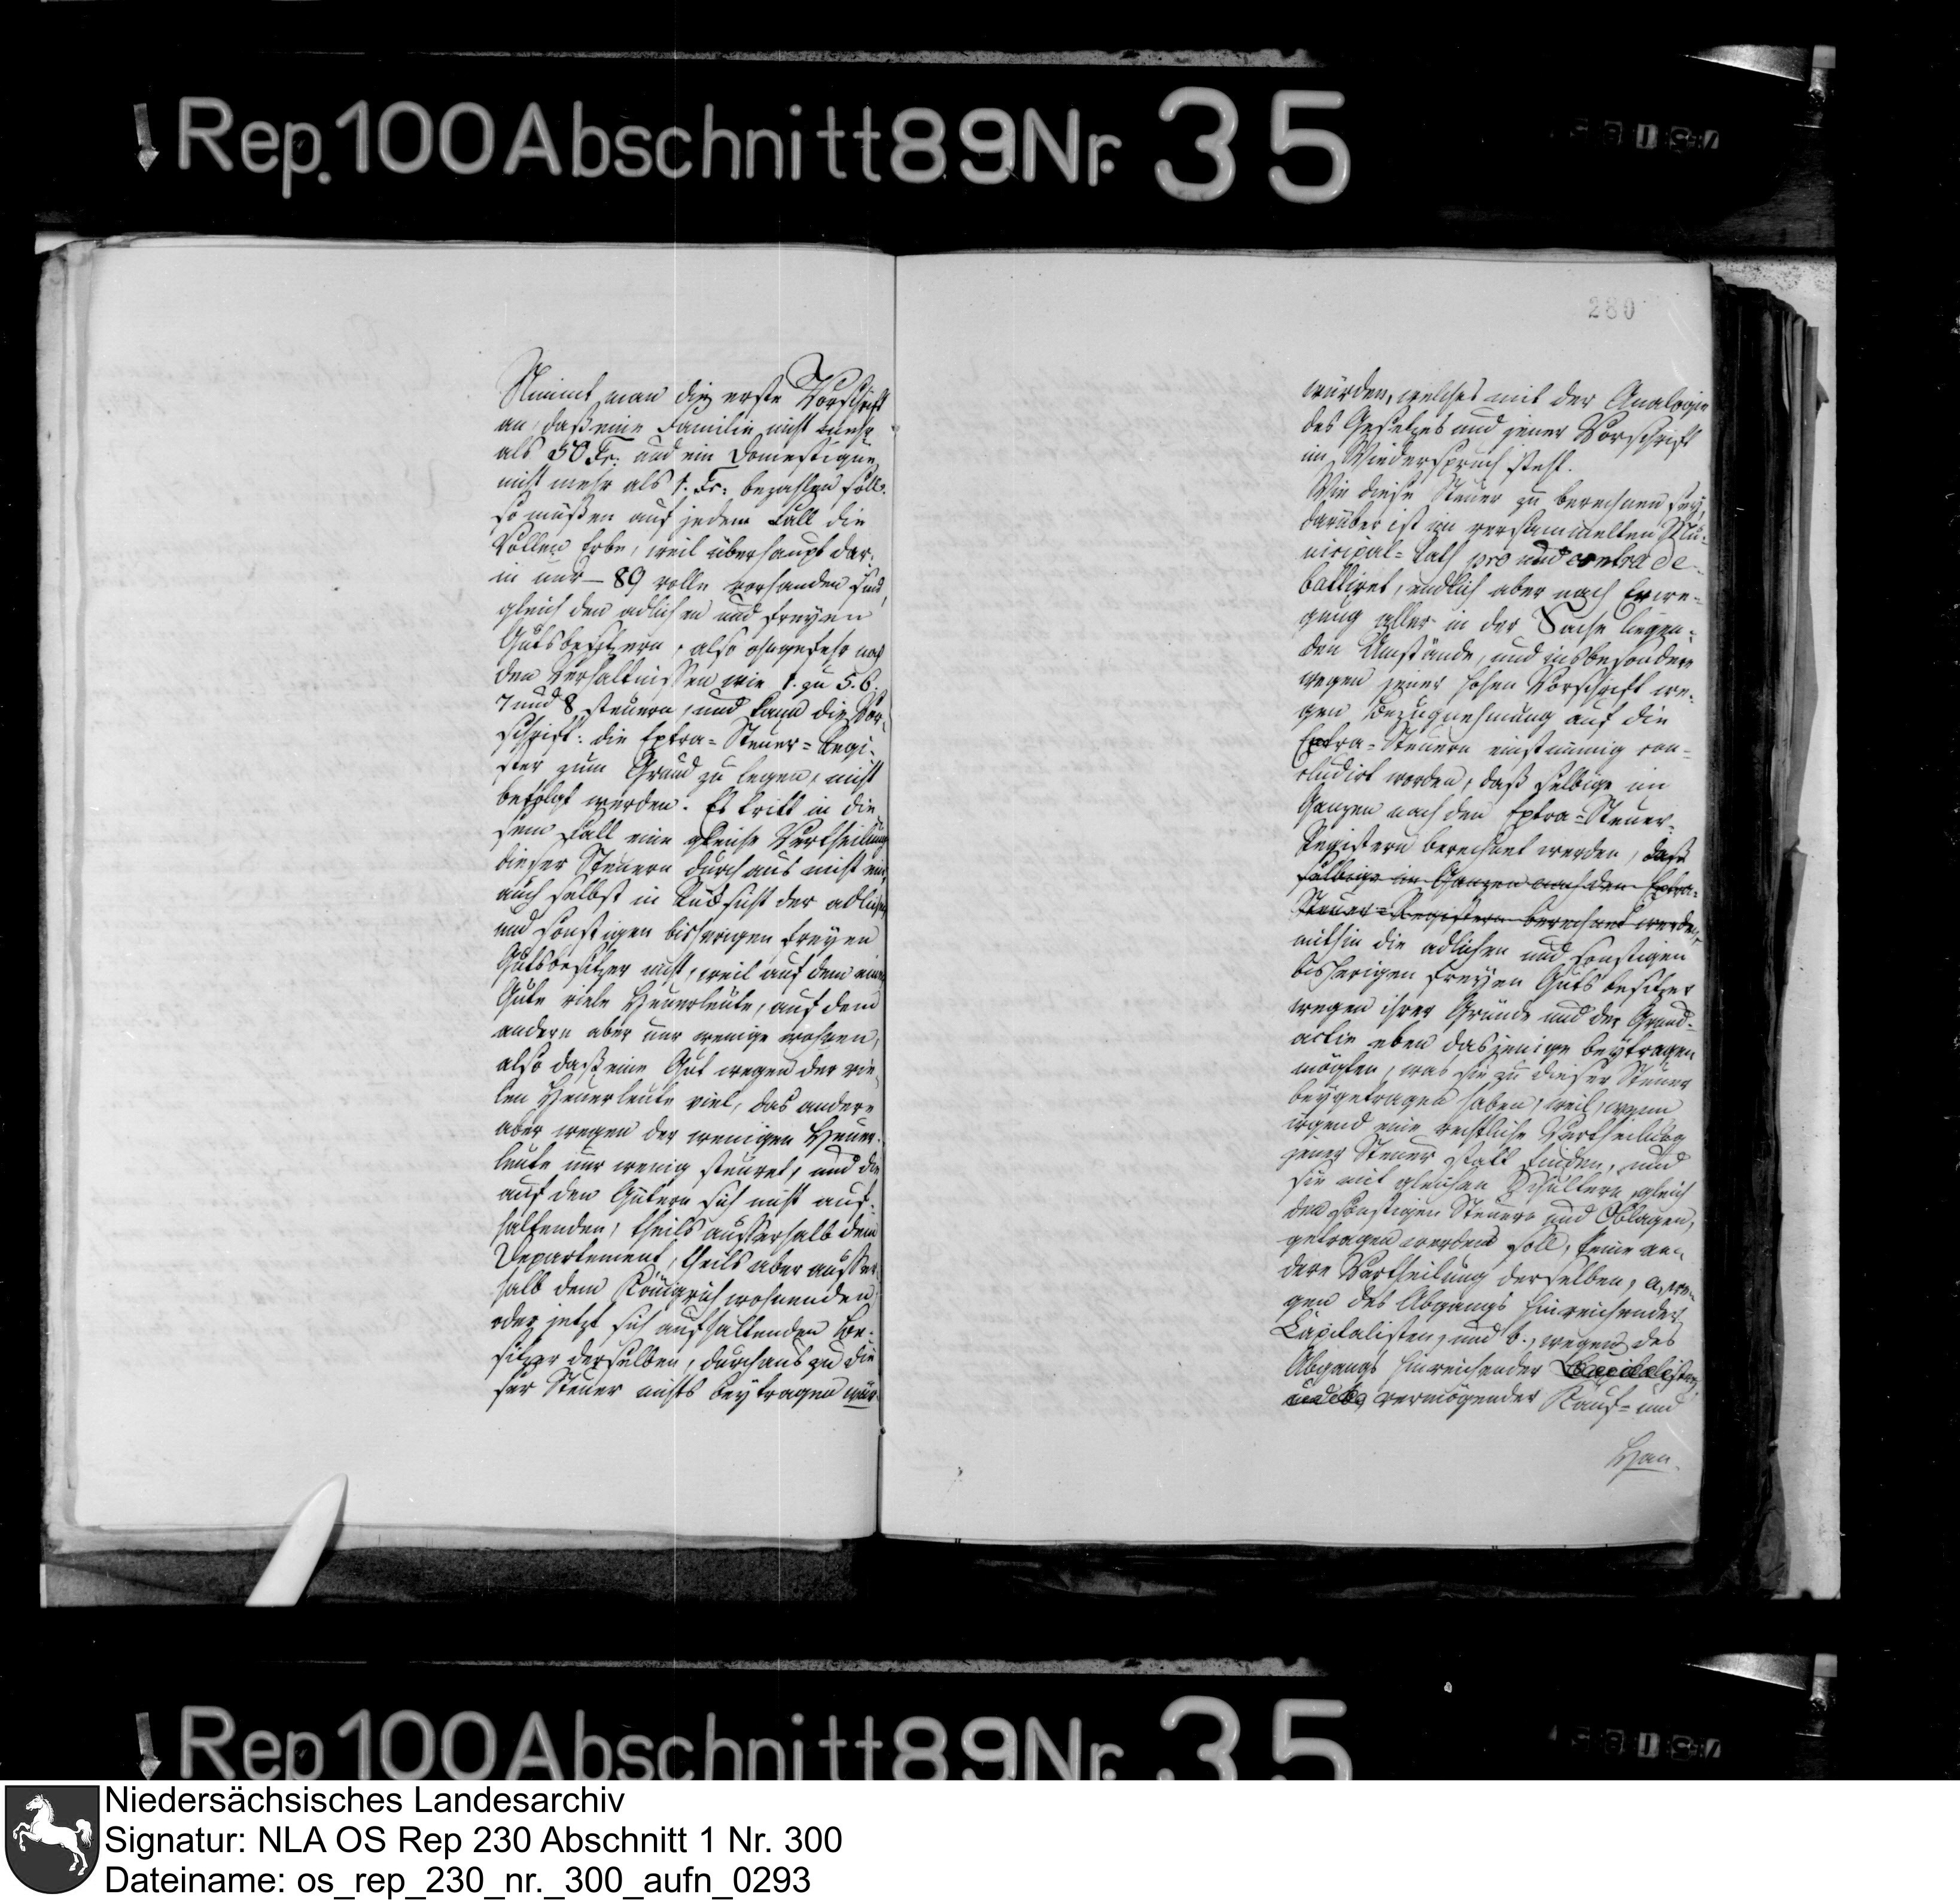 Rep. 100 Abschnitt 89 Nr. 35
280
Nimmt man die erste Vorschrift
an, daß eine Familie nicht mehr
als 50 Fr: und ein Domestique
nicht mehr als 1. Fr: bezahlen soll.
so müßen auf jedem Fall die
Vollen Erbe, weil überhaupt dar,
in nur — 89 volle vorhanden sind,
gleich den adlichen und freyen
Gutsbesitzern, also ohngefehr nach
den Verhältnissen wie 1. zu 5. 6.
7 und 8 steuern, und kann die Vor,
schrift: die Extra-Steuer-Regi,
ster zum Grund zu legen, nicht
befolgt werden. Es tritt in die
sem Fall eine gleiche Vertheilung
dieser Steuern durchaus nicht ein,
auch selbst in Rücksicht der adlichen
und sonstigen bisherigen freyen
Gutsbesitzer nicht, weil auf dem einen
Gute viele Heuerleute, auf dem
andern aber nur wenige wohnen,
also daß eine Gut wegen der vie,
len Heuerleute viel, das andere
aber wegen der wenigen Heuer,
leute nur wenig steuret, und die
auf den Gütern sich nicht auf,
haltenden, theils ausserhalb dem
Departement, theils aber ausser
halb dem Königreich wohnenden
oder jetzt sich aufhaltenden Be,
sitzer derselben, durchaus zu die
ser Steuer nichts beytragen wür
würden, welches mit der Analogie
des Gesetzes und jener Vorschrift
im Wiederspruch steht.
Wie diese Steuer zu berechnen sey,
darüber ist im versammelten Mu-
nicipal-Rath pro und contra de-
battiret, endlich aber nach Erwe-
gung aller in der Sache liegen-
den Umstände, und insbesondere
wegen jener hohen Vorschrift we-
gen Bezugnehmung auf die
Extra-Steuern einstimmig con-
cludirt worden, daß selbige im
Ganzen nach den Extra-Steuer-
Registern berechnet werden, daß
selbige im Ganzen nach den Extra-
Steuer-Registern berechnet werden,
mithin die adlichen und sonstigen
bisherigen freyen Gutsbesitzer
wegen ihrer Gründe und der Grund-
actie eben dasjenige beytragen
mögten, was sie zu dieser Steuer
beygetragen haben, weil, wenn
irgend eine rechtliche Vertheilung
jener Steuer statt finden, und
sie mit gleichen Schultern gleich
den sonstigen Steuern und Oblagen,
getragen werden soll, keine an-
dere Vertheilung derselben, a, we-
gen des Abgangs hinreichender
Capitalisten, und b., wegen des
Abgangs hinreichender Capitalisten
und b, vermögender Kauf- und
Han-
Rep. 100 Abschnitt 89 Nr. 35
Niedersächsisches Landesarchiv
Signatur: NLA OS Rep 230 Abschnitt 1 Nr. 300
Dateiname: os_rep_230_nr._300_aufn_0293